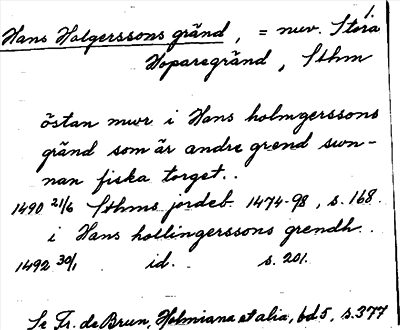 1.
Hans Holgerssons gränd, = nuv. Stora
Hoparegränd, Sthm
östan mwr i Hans holmgerssons
gränd som är andre grend swn-
nan fiska torget..
1490 21/6 Sthms jordeb. 1474-98, s. 168.
i Hans hollingerssons grendh..
1492 30/1 id. s. 201.
Se Fr. de Brun, Holmiana et alia, bd 5, s. 377